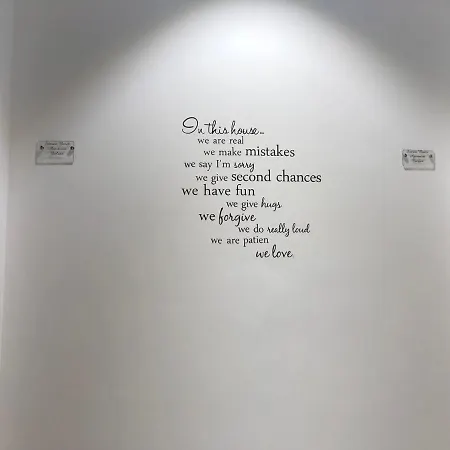 In this house...
we are real
we make mistakes
we say I'm sorry
we give second chances
we have fun
we give hugs
we forgive
we do really loud
we are patien
we love.